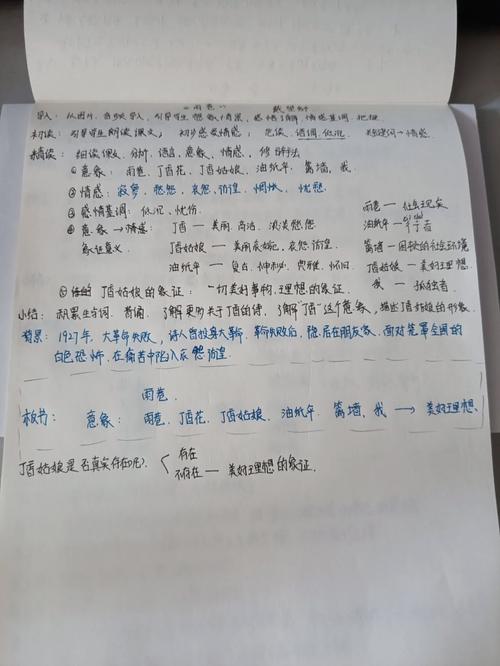 《雨巷》 戴望舒
导入：从图片、音频导入，引导学生想象情景，感悟了解情感基调
初读：引导学生朗读课文，初步感受情感；范读、语调、低沉 关键词问→情感
精读：细读课文、分析、语言、意象、情感、修辞手法
①意象：雨巷、丁香花、丁香姑娘、油纸伞、篱墙、我
②情感：寂寥、愁怨、哀怨、彷徨、惆怅、忧愁
③感情基调：低沉、忧伤 雨巷—社会现实
④意象→情感：丁香—美丽、高洁、淡淡愁怨 油纸伞—行者
象征意义 丁香姑娘—美丽哀婉、哀怨彷徨 篱墙—困扰的社会环境
油纸伞—复古、神秘、典雅、怀旧 丁香姑娘—美好理想
⑤丁香姑娘的象征：一切美好事物、理想的象征 我—孤独者
小结：积累生字词、背诵、了解更多关于丁香的诗，了解"丁香"这个意象，描述丁香姑娘的形象
背景：1927年，大革命失败，诗人曾投身大革命，革命失败后，隐居在朋友家，面对笼罩全国的
白色恐怖，在痛苦中陷入哀怨彷徨
雨巷
板书：意象：雨巷、丁香花、丁香姑娘、油纸伞、篱墙、我→美好理想
丁香姑娘是否真实存在呢？ 存在
不存在—美好理想的象征